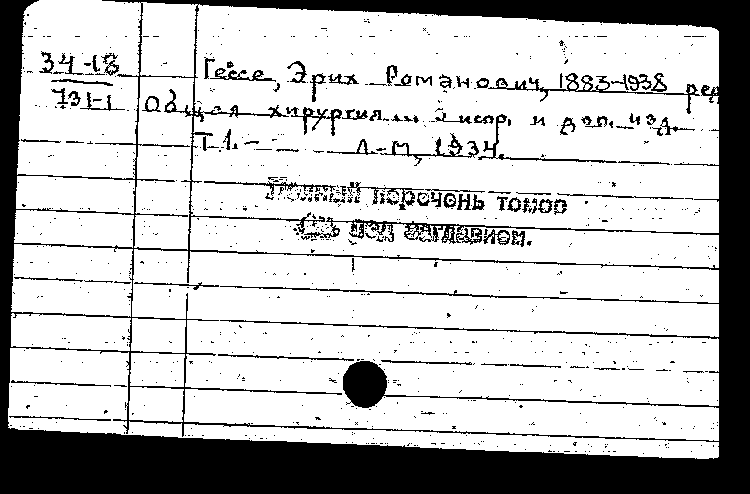 34-18
731-1
Гессе, Эрих Романович, 1883-1938 ред
Общая хирургия... 3 испр. и доп. изд.
Т 1. - Л-М, 1934.
Полный перечень томов
См. под заглавием.